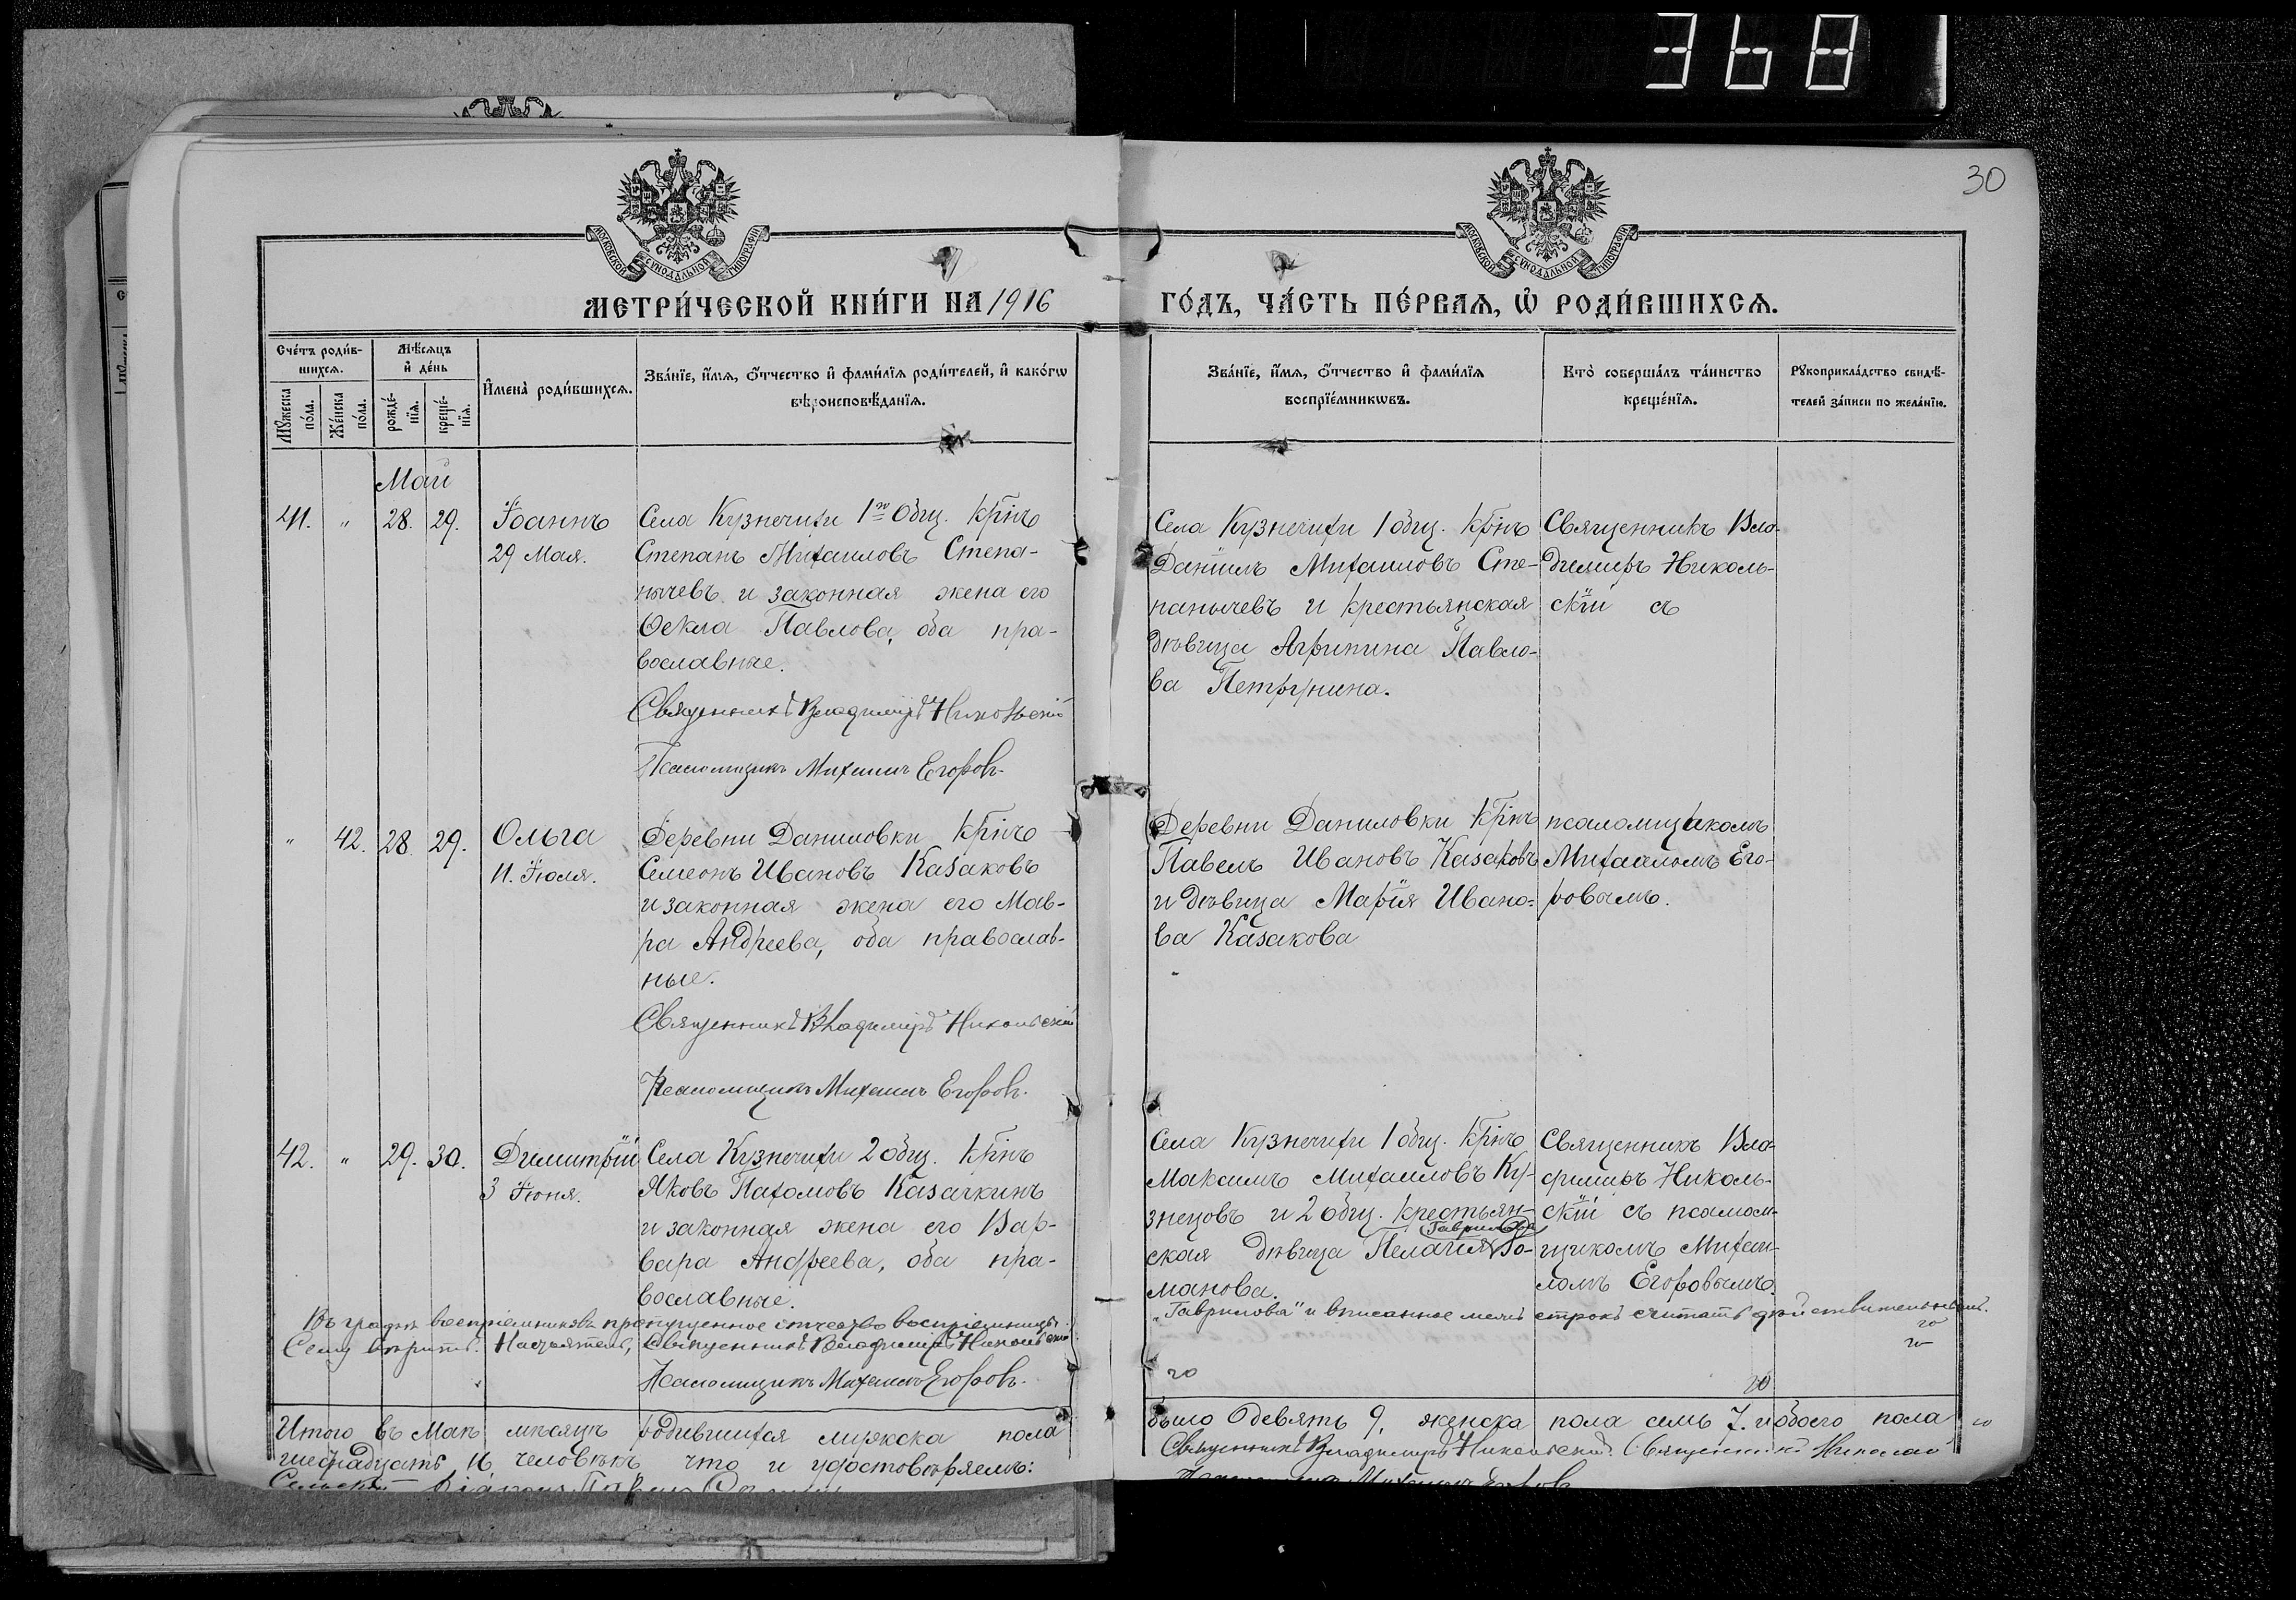 368
30
МОСКОВСКОЙ СѴНОДАЛЬНОЙ ТИПОГРАФІИ
МОСКОВСКОЙ СѴНОДАЛЬНОЙ ТИПОГРАФІИ
МЕТРИ́ЧЕСКОЙ КНИ́ГИ НА 1916
ГО́ДЪ, ЧА́СТЬ ПЕ́РВАЯ, Ѡ҆ РОДИ́ВШИХСѦ.
Сче́тъ роди́в-
шихсѧ.
Мꙋ́жеска по́ла.
Же́нска по́ла.
Мѣ́сѧцъ
и҆ де́нь
рожде́-
нїѧ.
креще́-
нїѧ.
И҆мена̀ роди́вшихсѧ.
Зва́нїе, и҆́мѧ, ѻ҆́тчество и҆ фами́лїѧ роди́телей, и҆ како́гѡ
вѣроисповѣ́данїѧ.
Зва́нїе, и҆́мѧ, ѻ҆́тчество и҆ фами́лїѧ
воспрїе́мникѡвъ.
Кто̀ соверша́лъ та́инство
креще́нїѧ.
Рꙋкоприкла́дство свидѣ́-
телей за́писи по жела́нїю.
Май
41. " 28. 29.
Іоаннъ
29 Мая.
Села Кузнечихи 1го Общ. крнъ
Степанъ Михаиловъ Степа-
нычевъ и законная жена его
Ѳекла Павлова, оба пра-
вославные.
Священникъ Владиміръ Никольскій
Псаломщикъ Михаилъ Егоровъ.
Села Кузнечихи 1 общ. крнъ
Даніилъ Михаиловъ Сте-
панычевъ и крестьянская
дѣвица Агрипина Павло-
ва Петрунина.
Священникъ Вла-
димиръ Николь-
скій съ
" 42. 28. 29.
Ольга
11. Іюля.
Деревни Даниловки крнъ
Семеонъ Ивановъ Казаковъ
и законная жена его Мав-
ра Андреева, оба православ-
ные.
Священникъ Владиміръ Никольскій
Псаломщикъ Михаилъ Егоровъ.
Деревни Даниловки крнъ
Павелъ Ивановъ Казаковъ
и дѣвица Марія Ивано-
ва Казакова
псаломщикомъ
Михаиломъ Его-
ровымъ.
42. " 29. 30.
Димитрій
3 Іюня.
Села Кузнечихи 2 общ. крнъ
Яковъ Пахомовъ Казачкинъ
и законная жена его Вар-
вара Андреева, оба пра-
вославные.
Села Кузнечихи 1 общ. крнъ
Максимъ Михаиловъ Ку-
знецовъ и 2 общ. крестьян-
Гаврилова
ская дѣвица Пелагія Ро-
манова.
Священникъ Вла-
димиръ Николь-
скій съ псалом-
щикомъ Михаи-
ломъ Егоровымъ.
Въ графѣ воспріемниковъ пропущенное отчество воспріемницы
"Гаврилова" и вписанное межъ строкъ считать дѣйствительнымъ.
Сему вѣрить. Настоятель, Священникъ Владиміръ Никольскій
Псаломщикъ Михаилъ Егоровъ.
Итого въ Маѣ мѣсяцѣ родившихся мужска пола
было девять 9, женска пола семь 7. и обоего пола
шестнадцать 16 человѣкъ что и удостовѣряемъ:
Священникъ Владиміръ Никольскій Священникъ Николай